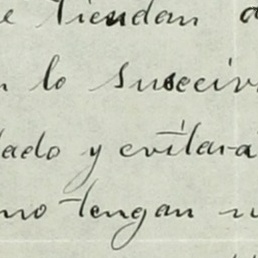 e tiendan a
n lo suseciv
lado y evitara
no tengan n